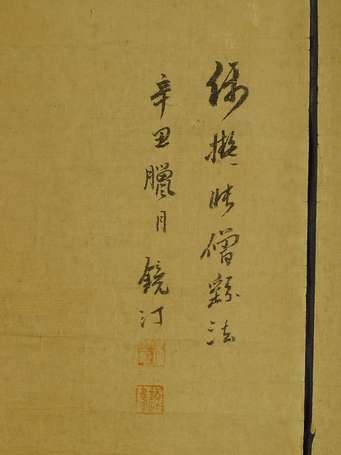 仿擬張僧繇法
辛丑臘月 鏡汀